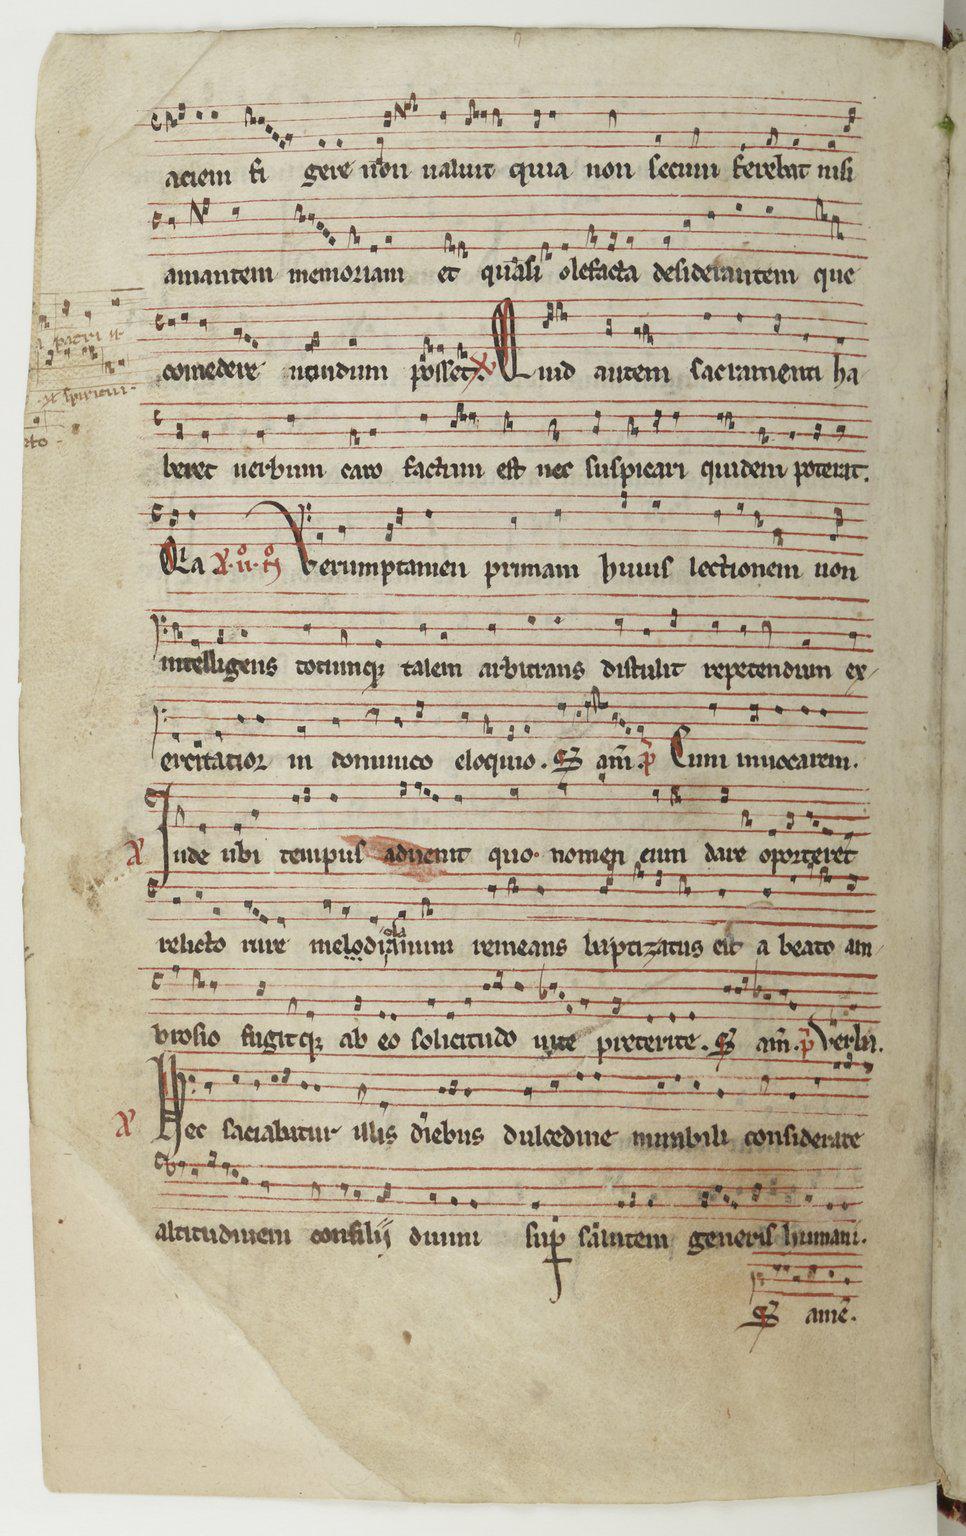 aciem fi gere non ualuit quia non secum ferebat nisi
amantem memoriam et quasi olefacta desiderantem que
comedere nondum posset. Quid autem sacramenti ha
beret uerbum caro factum est nec suspicari quidem poterat.
Verumptamen primam huius lectionem non
intelligens totumq; talem arbitrans distulit repetendum ex
ercitatior in dominico eloquio. am̄. p̄ Cum inuocarem.
Inde ubi tempus aduenit quo nomen eum dare oporteret
relicto rure mediolanum remeans baptizatus est a beato am
brosio fugitq; ab eo solicitudo uite preterite. am̄. p̄ Verba.
Nec saciabatur illis diebus dulcedine mirabili considerare
altitudinem consilij diuini sup salutem generis humani.
amē.